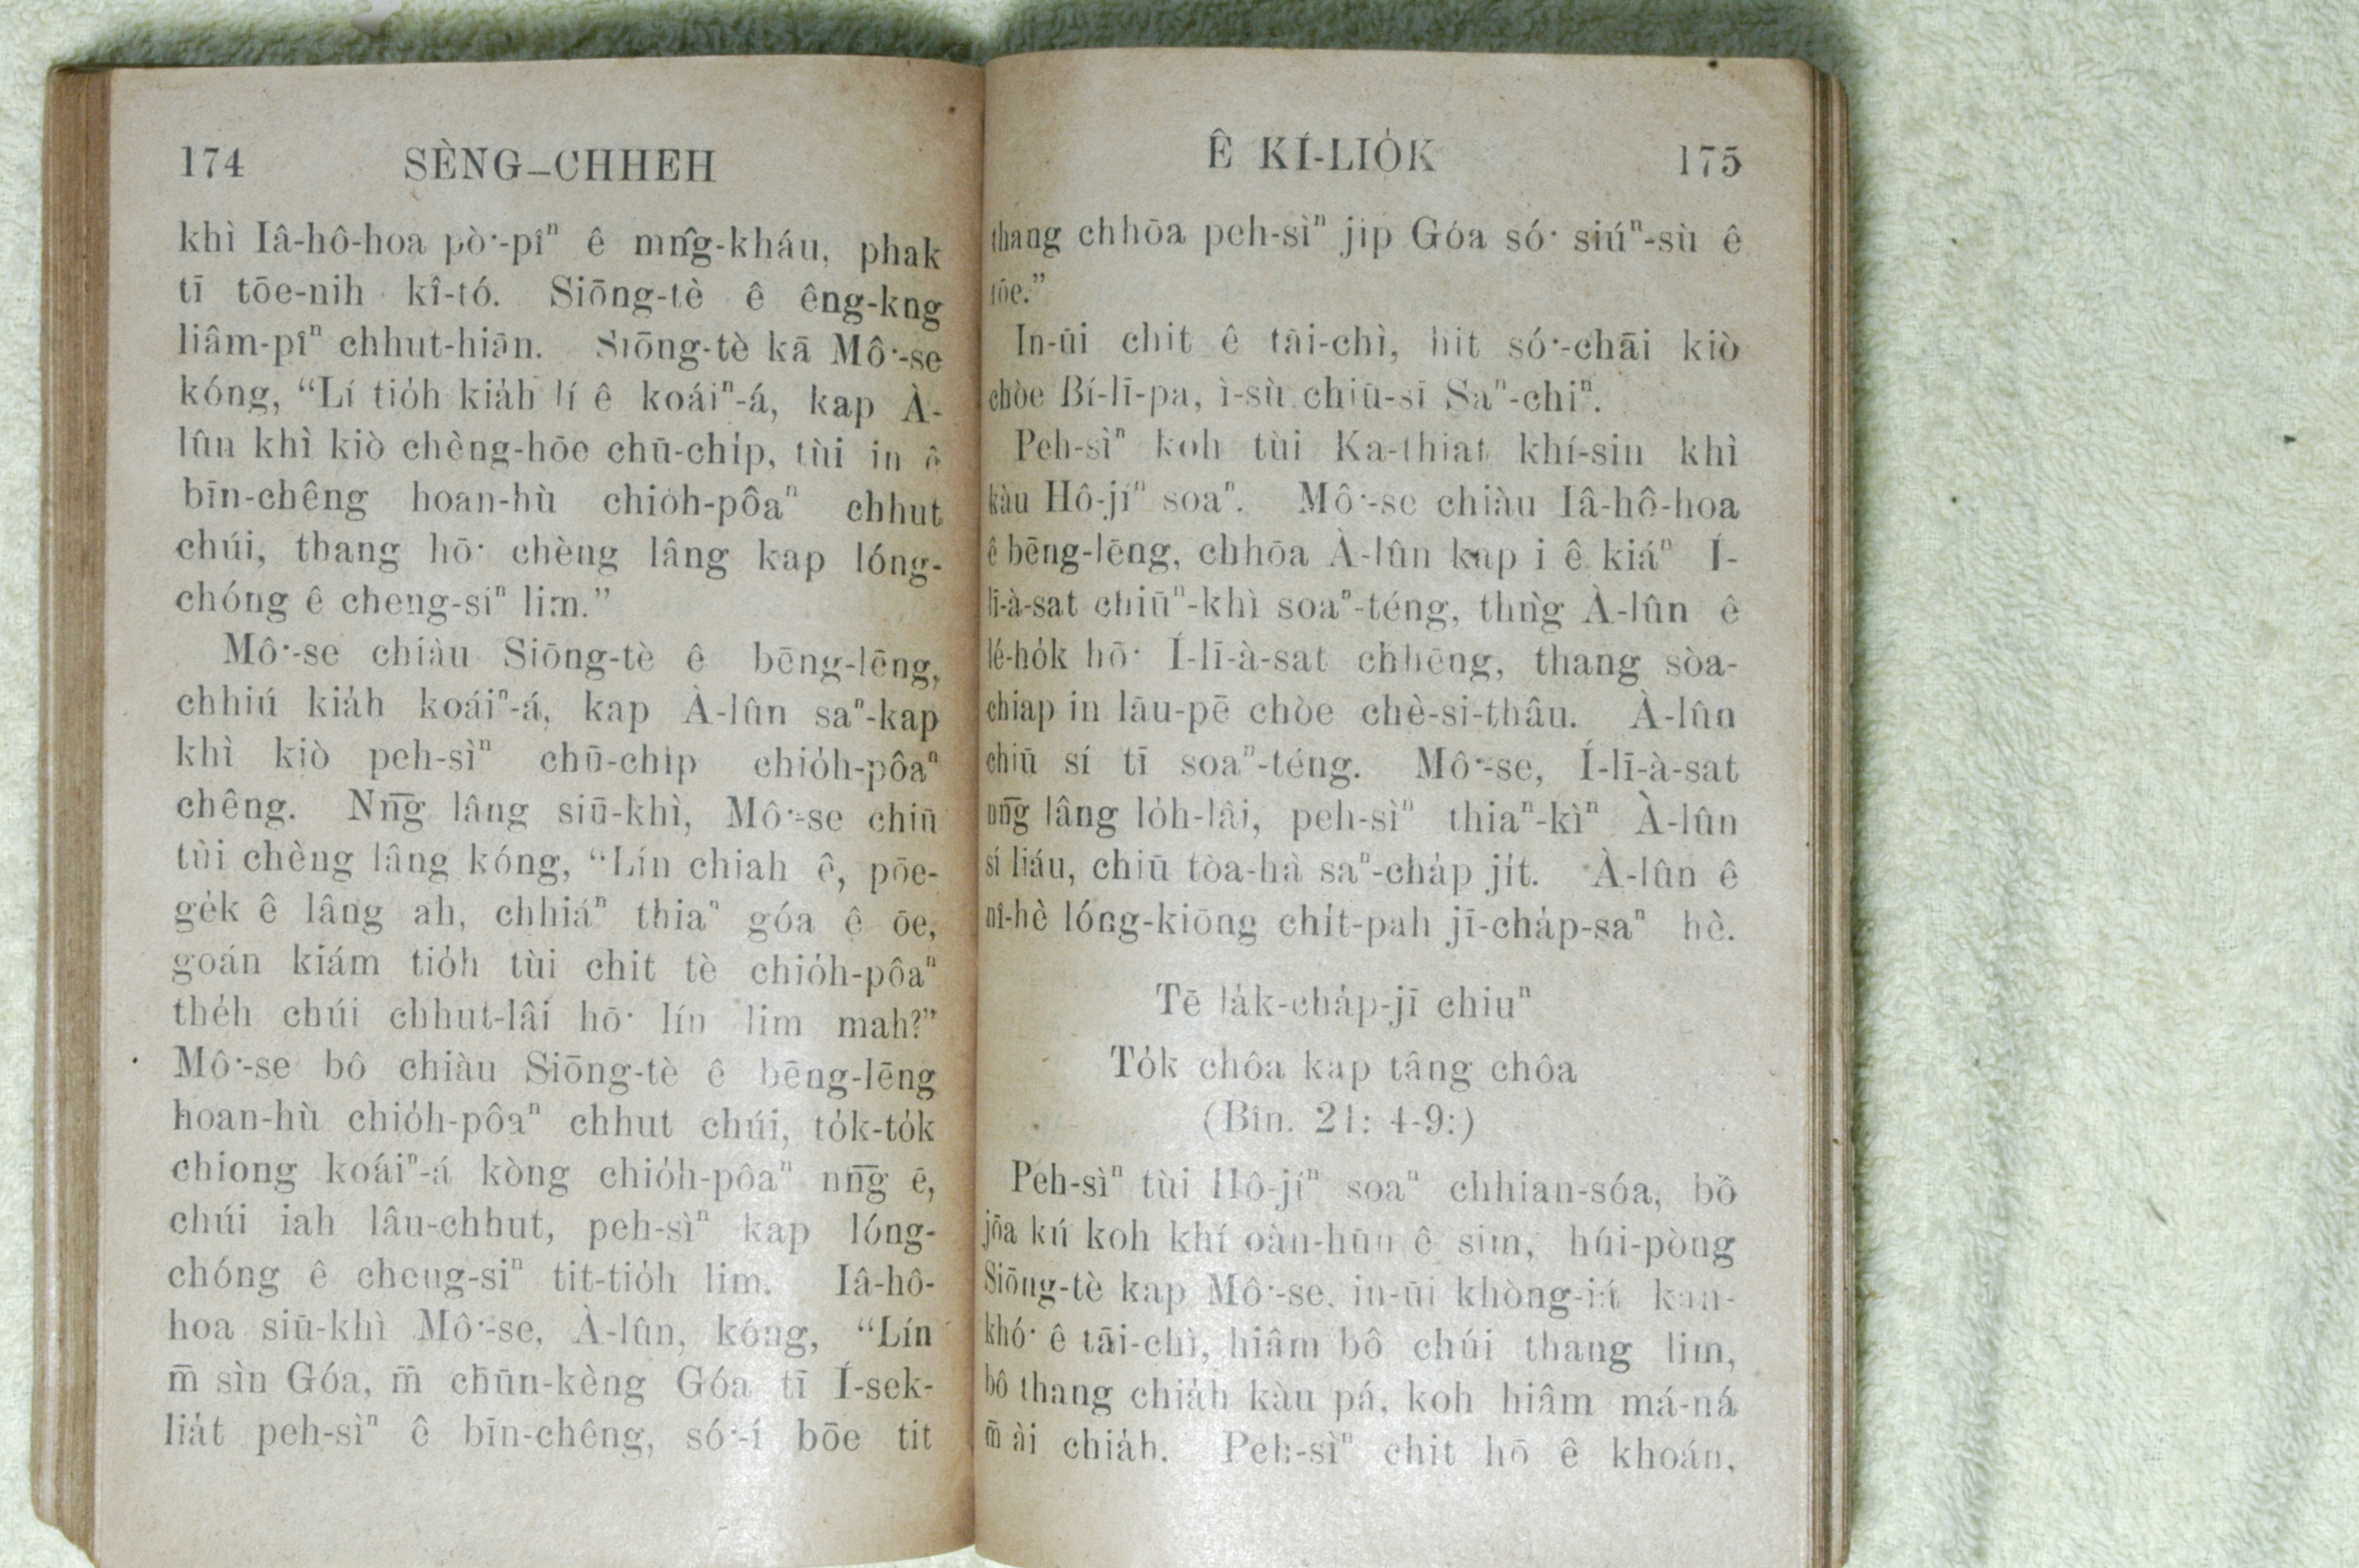 174 SÈNG-CHHEH
khì Iâ-hô-hoa pò͘-pîⁿ ê mn̂g-kháu, phak
tī tōe-nih kî-tó. Siōng-tè ê êng-kng
liâm-pîⁿ chhut-hiān. Siōng-tè kā Mô͘-se
kóng, “Lí tio̍h kia̍h lí ê koáiⁿ-á, kap À-
lûn khì kiò chèng-hōe chū-chi̍p, tùi in ê
bīn-chêng hoan-hù chio̍h-pôaⁿ chhut
chúi, thang hō͘ chèng lâng kap lóng-
chóng ê cheng-siⁿ lim.”
Mô͘-se chiàu Siōng-tè ê bēng-lēng,
chhiú kia̍h koáiⁿ-á, kap À-lûn saⁿ-kap
khì kiò peh-sìⁿ chū-chi̍p chio̍h-pôaⁿ
chêng. Nn̄g lâng siū-khì, Mô͘-se chiū
tùi chèng lâng kóng, “Lín chiah ê, pōe-
ge̍k ê lâng ah, chhiáⁿ thiaⁿ góa ê ōe,
goán kiám tio̍h tùi chit tè chio̍h-pôaⁿ
the̍h chúi chhut-lâi hō͘ lín lim mah?”
Mô͘-se bô chiàu Siōng-tè ê bēng-lēng
hoan-hù chio̍h-pôaⁿ chhut chúi, to̍k-to̍k
chiong koáiⁿ-á kòng chio̍h-pôaⁿ nn̄g ē,
chúi iah lâu-chhut, peh-sìⁿ kap lóng-
chóng ê cheng-siⁿ tit-tio̍h lim. Iâ-hô-
hoa siū-khì Mô͘-se, À-lûn, kóng, “Lín
m̄ sìn Góa, m̄ chūn-kèng Góa tī Í-sek-
lia̍t peh-sìⁿ ê bīn-chêng, só͘-í bōe tit
Ê KÍ-LIO̍K 175
thang chhōa peh-sìⁿ ji̍p Góa só͘ siúⁿ-sù ê
tōe.”
In-ūi chit ê tāi-chì, hit só͘-chāi kiò
chòe Bí-lī-pa, ì-sù chiū-sī Saⁿ-chiⁿ.
Peh-sìⁿ koh tùi Ka-thiat khí-sin khì
kàu Hô-jíⁿ soaⁿ. Mô͘-se chiàu Iâ-hô-hoa
ê bēng-lēng, chhōa À-lûn kap i ê kiáⁿ Í-
lī-à-sat chiūⁿ-khì soaⁿ-téng, thǹg À-lûn ê
lé-ho̍k hō͘ Í-lī-à-sat chhēng, thang sòa-
chiap in lāu-pē chòe chè-si-thâu. À-lûn
chiū sí tī soaⁿ-téng. Mô͘-se, Í-lī-à-sat
nn̄g lâng lo̍h-lâi, peh-sìⁿ thiaⁿ-kìⁿ À-lûn
sí liáu, chiū tòa-hà saⁿ-cha̍p ji̍t. À-lûn ê
nî-hè lóng-kiōng chi̍t-pah jī-cha̍p-saⁿ hè.
Tē la̍k-cha̍p-jī chiuⁿ
To̍k chôa kap tâng chôa
(Bîn. 21: 4-9:)
Peh-sìⁿ tùi Hô-jíⁿ soaⁿ chhian-sóa, bô
jōa kú koh khí oàn-hūn ê sim, húi-pòng
Siōng-tè kap Mô͘-se, in-ūi khòng-iá kan-
khó͘ ê tāi-chì, hiâm bô chúi thang lim,
bô thang chia̍h kàu pá, koh hiâm má-ná
m̄ ài chia̍h. Peh-sìⁿ chit hō ê khoán,